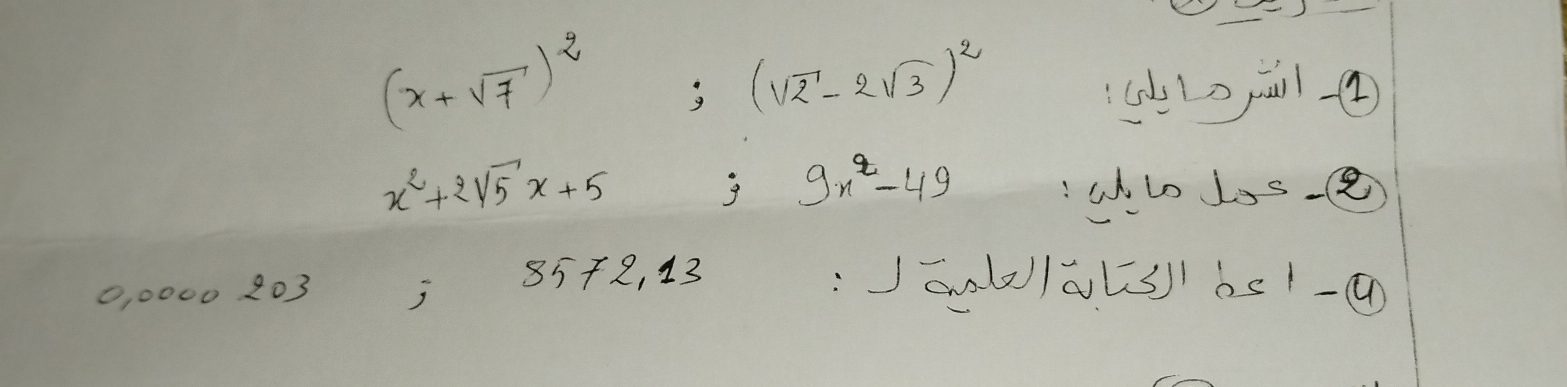 ①- انشر ما يلي: (√2 - 2√3)² ; (x + √7)²
②- عمل ما يلي: 9x² - 49 ; x² + 2√5 x + 5
④- اعط الكتابة العلمية لـ: 8572,13 ; 0,0000 203